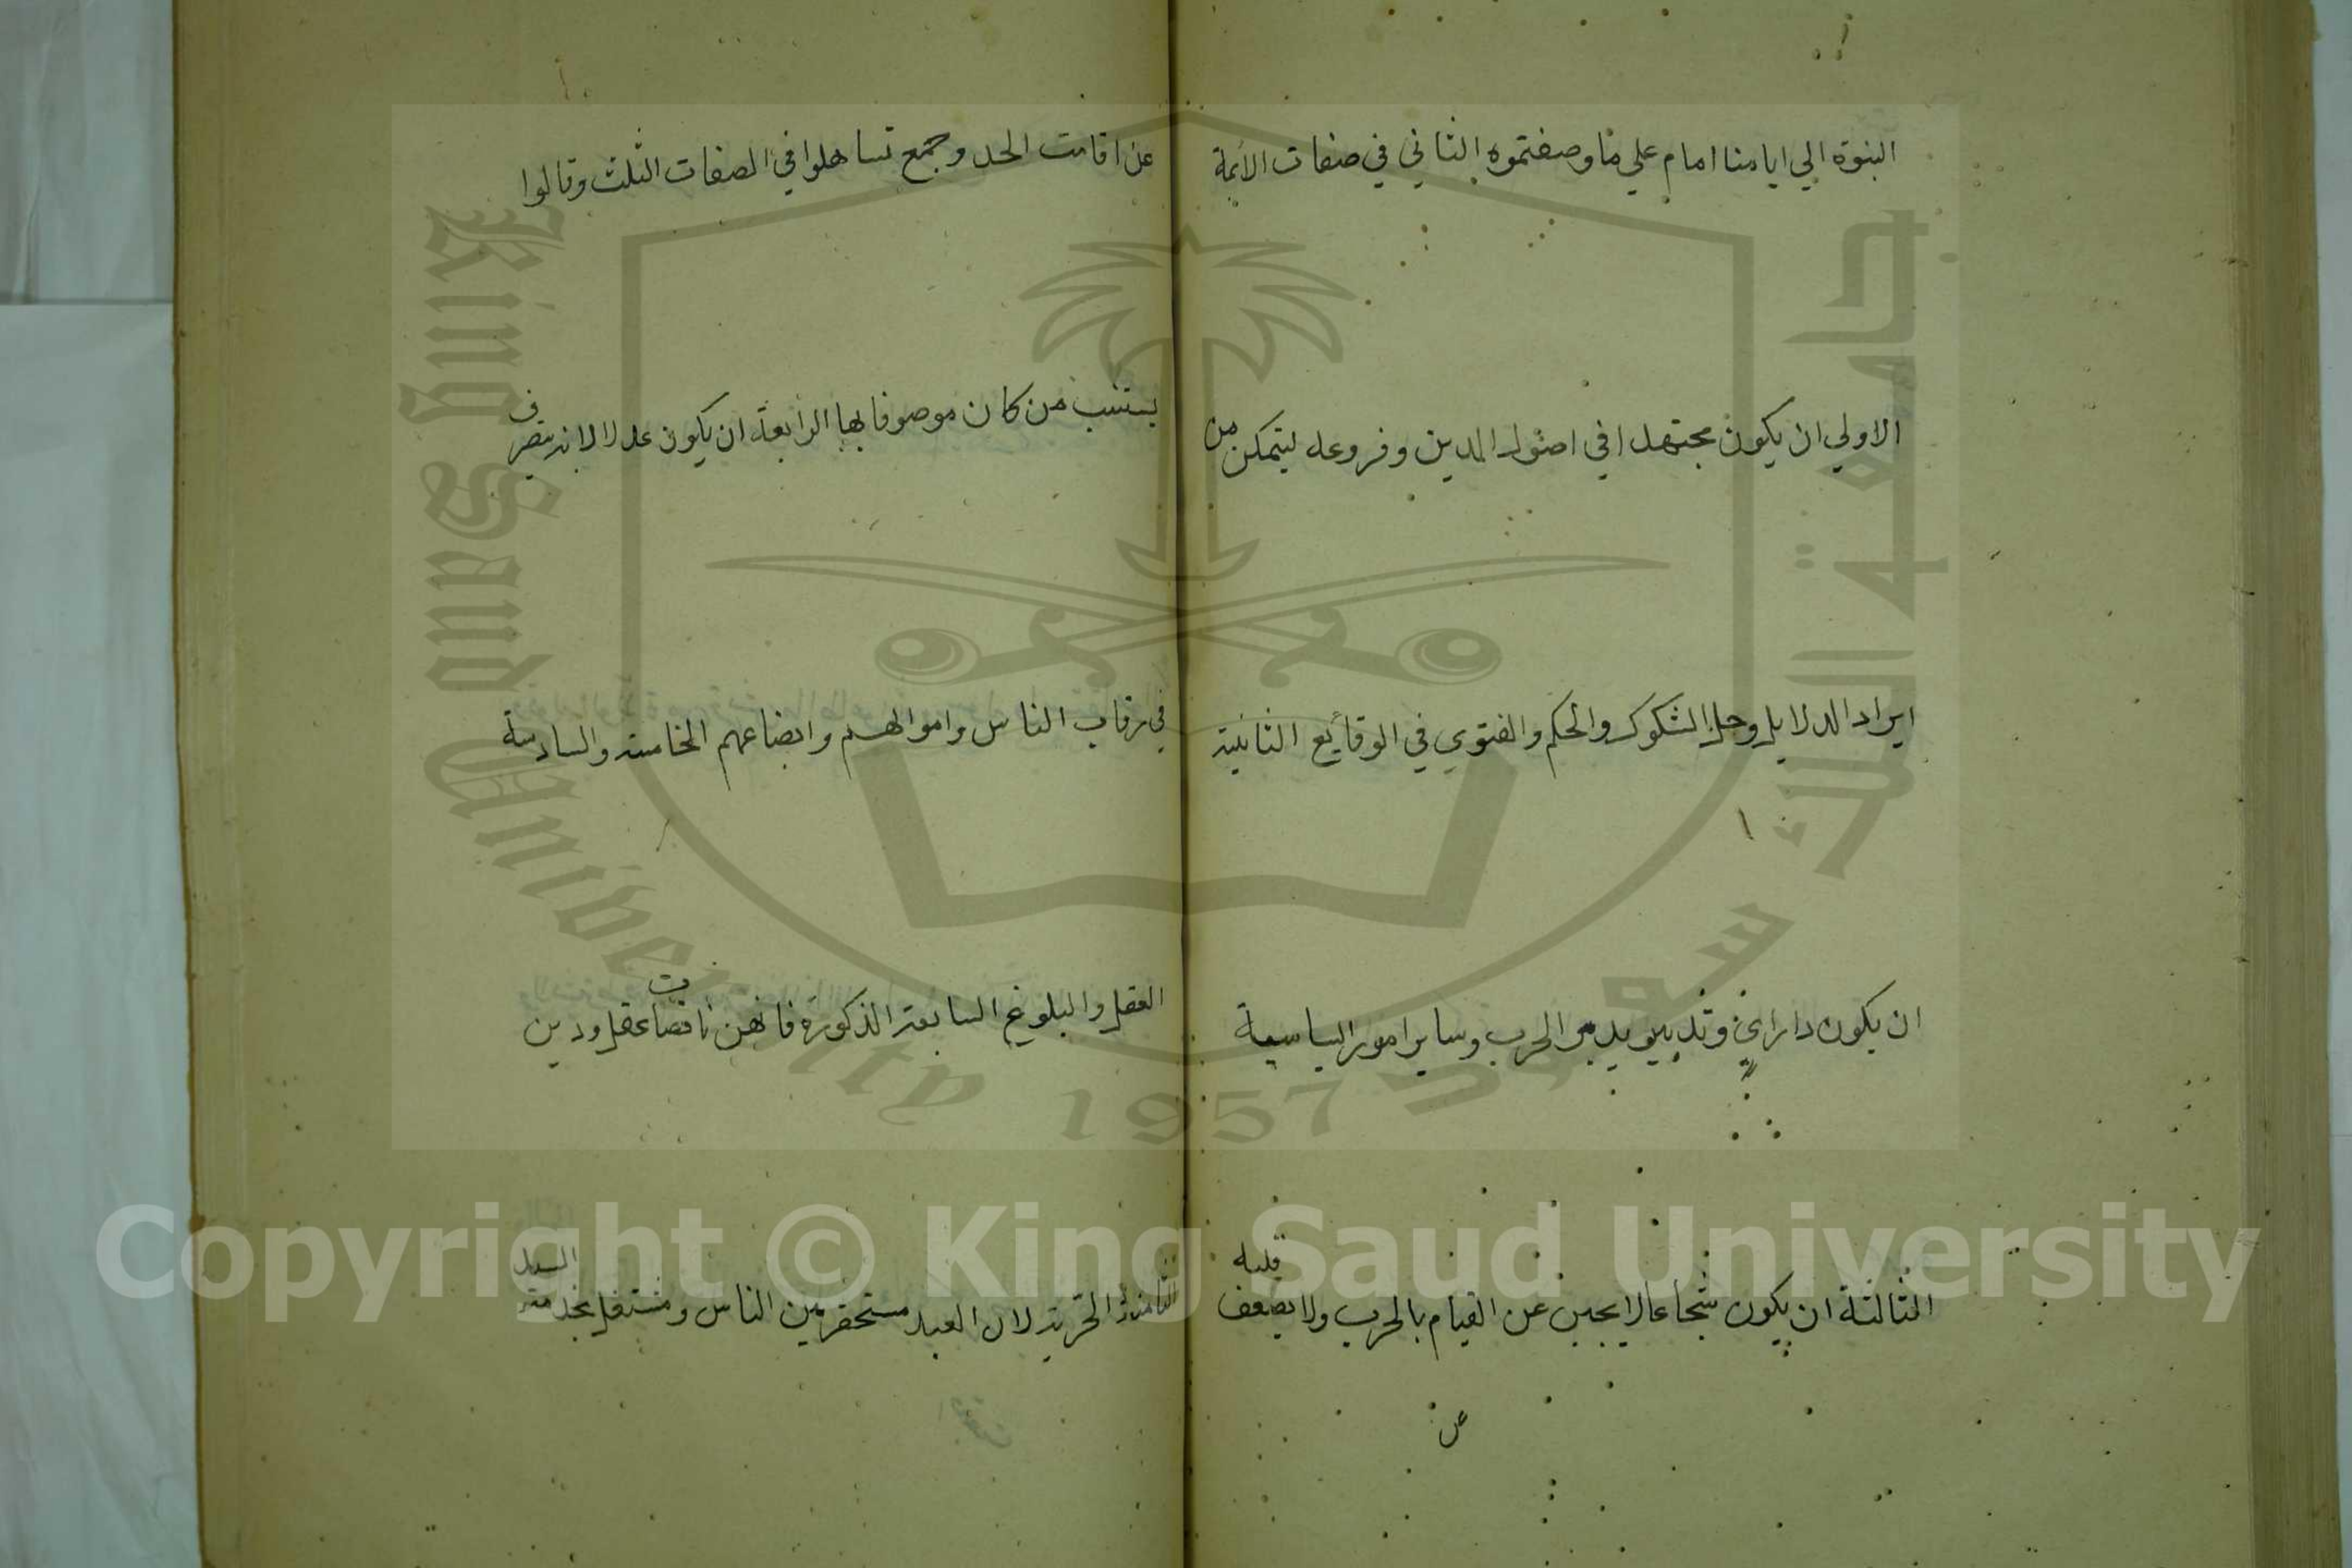 النبوة الي ايامنا امام علي ما وصفتموه الثاني في صفات الأئمة
الاولي ان يكون مجتهدا في اصول الدين وفروعه ليتمكن من
ايراد الدلايل وحل الشكوك والحكم والفتوي في الوقائع الثانية
ان يكون ذا راي وتدبير يدبر الحرب وساير امور السياسية
الثالثة ان يكون شجاعا لا يجبن عن القيام بالحرب ولا يضعف قلبه
عن
عن اقامت الحد وجمع تساهلوا في الصفات الثلث وقالوا
يستنيب من كان موصوفا بها الرابعة ان يكون عدلا لانه يتصرف
في رقاب الناس واموالهم وابضاعهم الخامسة والسادسة
العقل والبلوغ السابعة الذكورة فانهن ناقصات عقل ودين
الثامنة الحرية لان العبد مستحقر بين الناس ومشتغل بخدمة السيد
جامعة الملك سعود
King Saud University
1957
Copyright © King Saud University